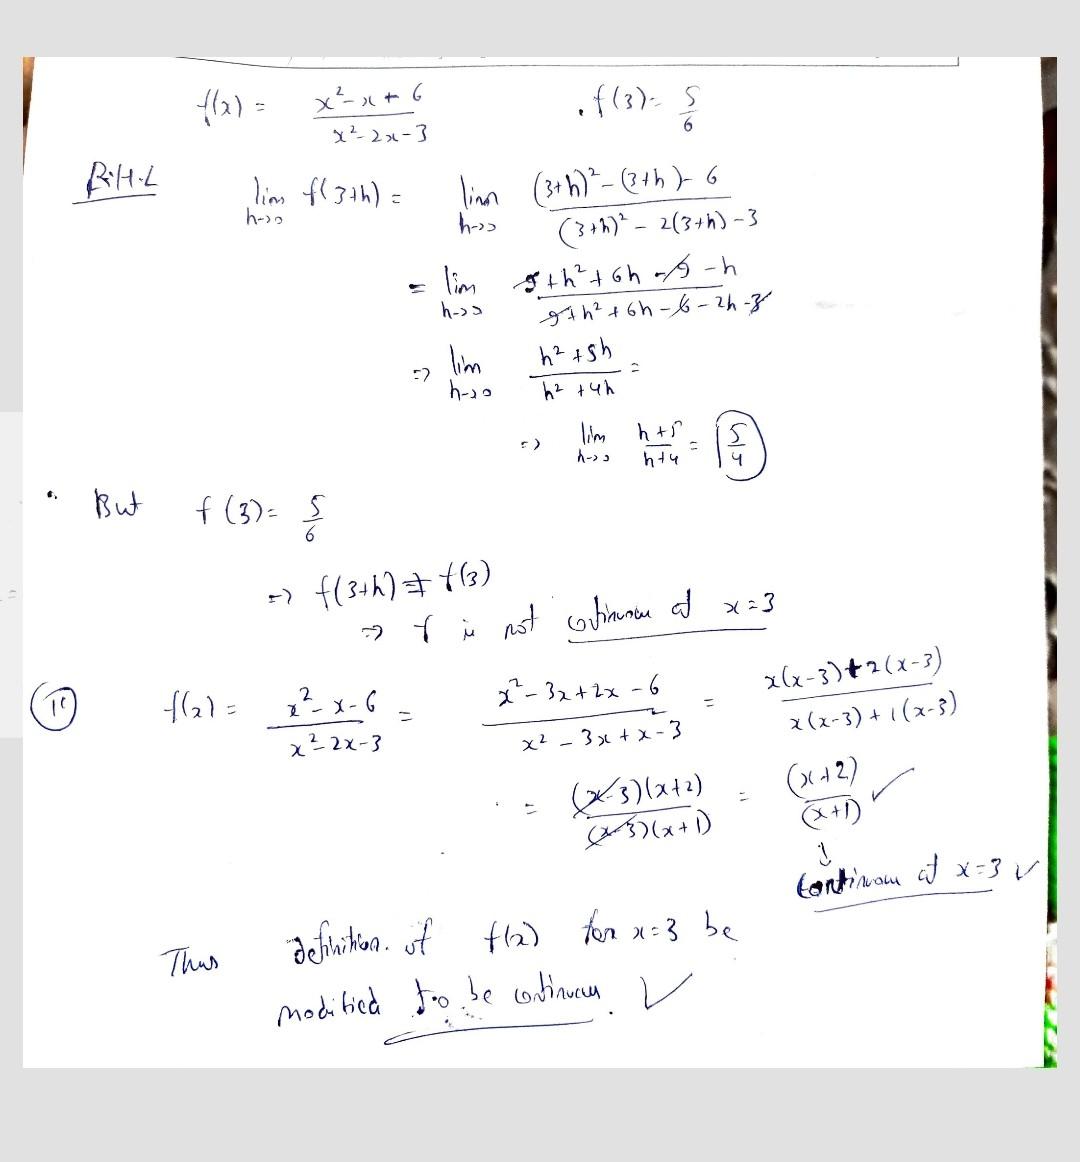 f(x) = x²-x+6 / x²-2x-3 . f(3)= 5/6
R.H.L lim h->0 f(3+h) = lim h->0 (3+h)²-(3+h)-6 / (3+h)²-2(3+h)-3
= lim h->0 9+h²+6h-9-h / 9+h²+6h-6-2h-3
=> lim h->0 h²+5h / h²+4h =
=> lim h->0 h+5 / h+4 = 5/4
But f(3)= 5/6
=> f(3+h) ≠ f(3)
=> f is not continuous at x=3
(ii) f(x) = x²-x-6 / x²-2x-3 = x²-3x+2x-6 / x²-3x+x-3 = x(x-3)+2(x-3) / x(x-3)+1(x-3)
= (x-3)(x+2) / (x-3)(x+1) = (x+2) / (x+1) ✓
↓
continuous at x=3 ✓
Thus definition of f(x) for x=3 be
modified to be continuous. ✓